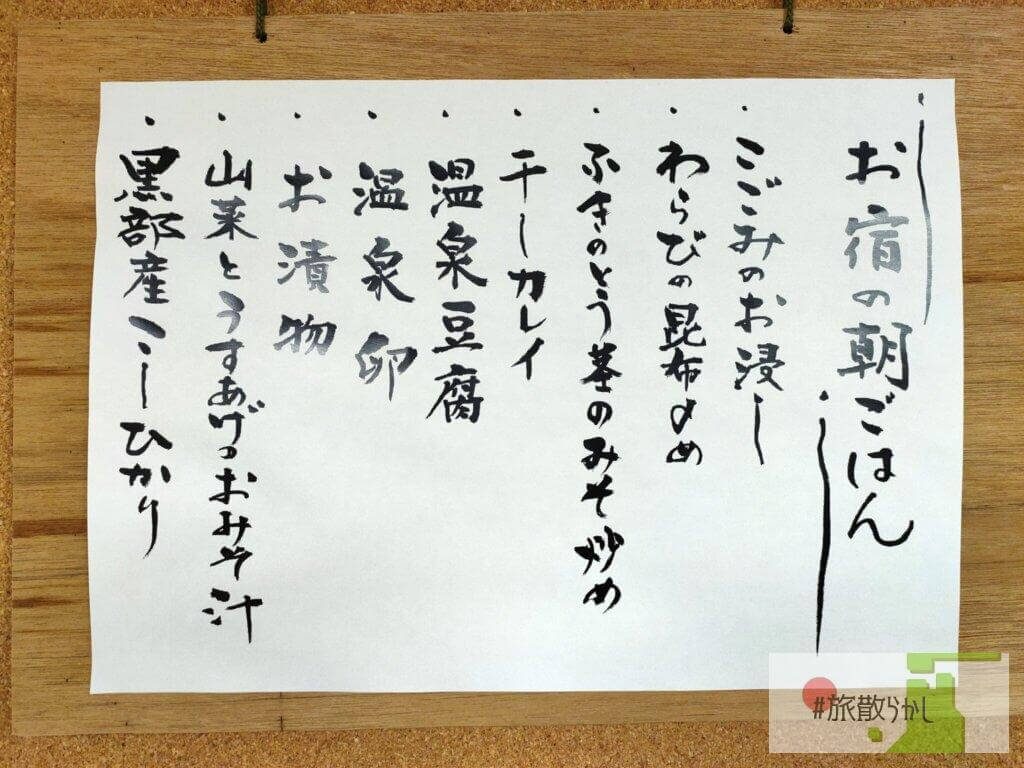 お宿の朝ごはん
・こごみのお浸し
・わらびの昆布〆め
・ふきのとう茎のみそ炒め
・干しカレイ
・温泉豆腐
・温泉卵
・お漬物
・山菜とうすあげのおみそ汁
・黒部産こしひかり
#旅散らかし